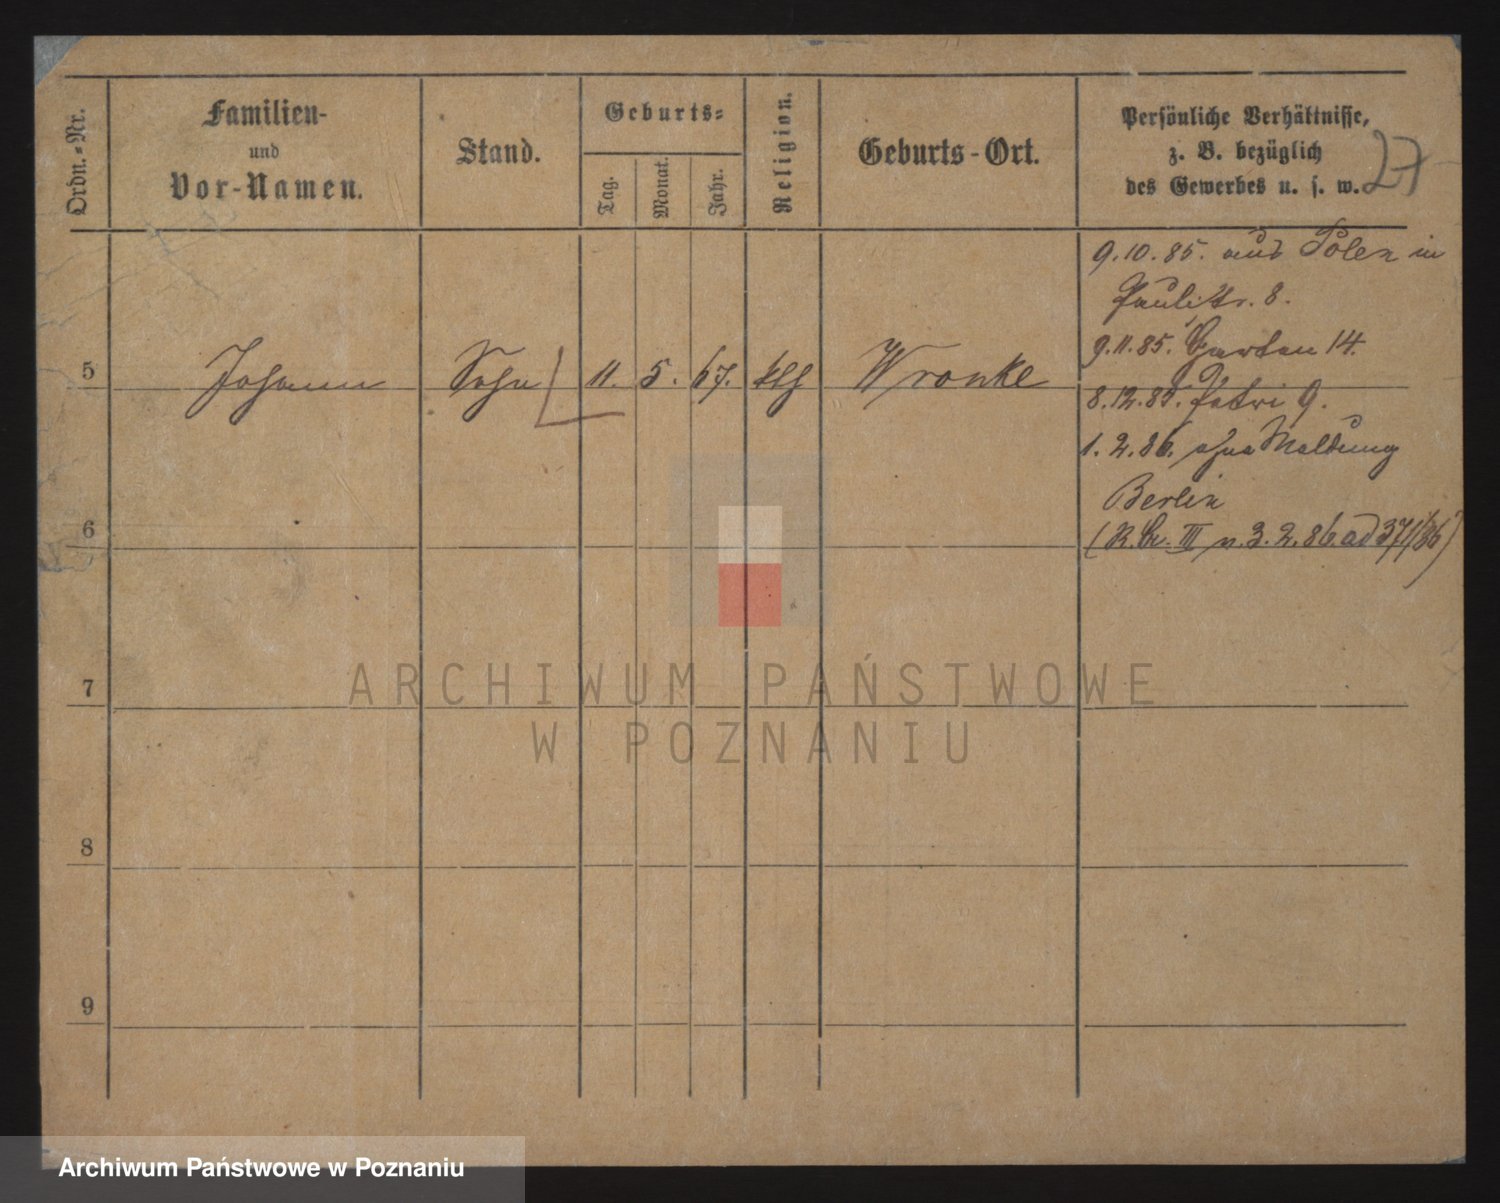 Ordn.-Nr.
Familien-
und
Vor-Namen.
Stand.
Geburts-
Tag.
Monat.
Jahr.
Religion.
Geburts-Ort.
Persönliche Verhältnisse,
z. B. bezüglich
des Gewerbes u. s. w.
27
9.10.85. aus Polen in
Paulistr. 8.
9.11.85. Garten 14.
5 Johann Sohn 11. 5. 67. kth Wronke
8.12.85. Petri 9.
1.2.86. ohne Meldung
Berlin
6
(R. Br. III v. 3.2.86. ad 371/86)
7
8
9
ARCHIWUM PAŃSTWOWE
W POZNANIU
Archiwum Państwowe w Poznaniu